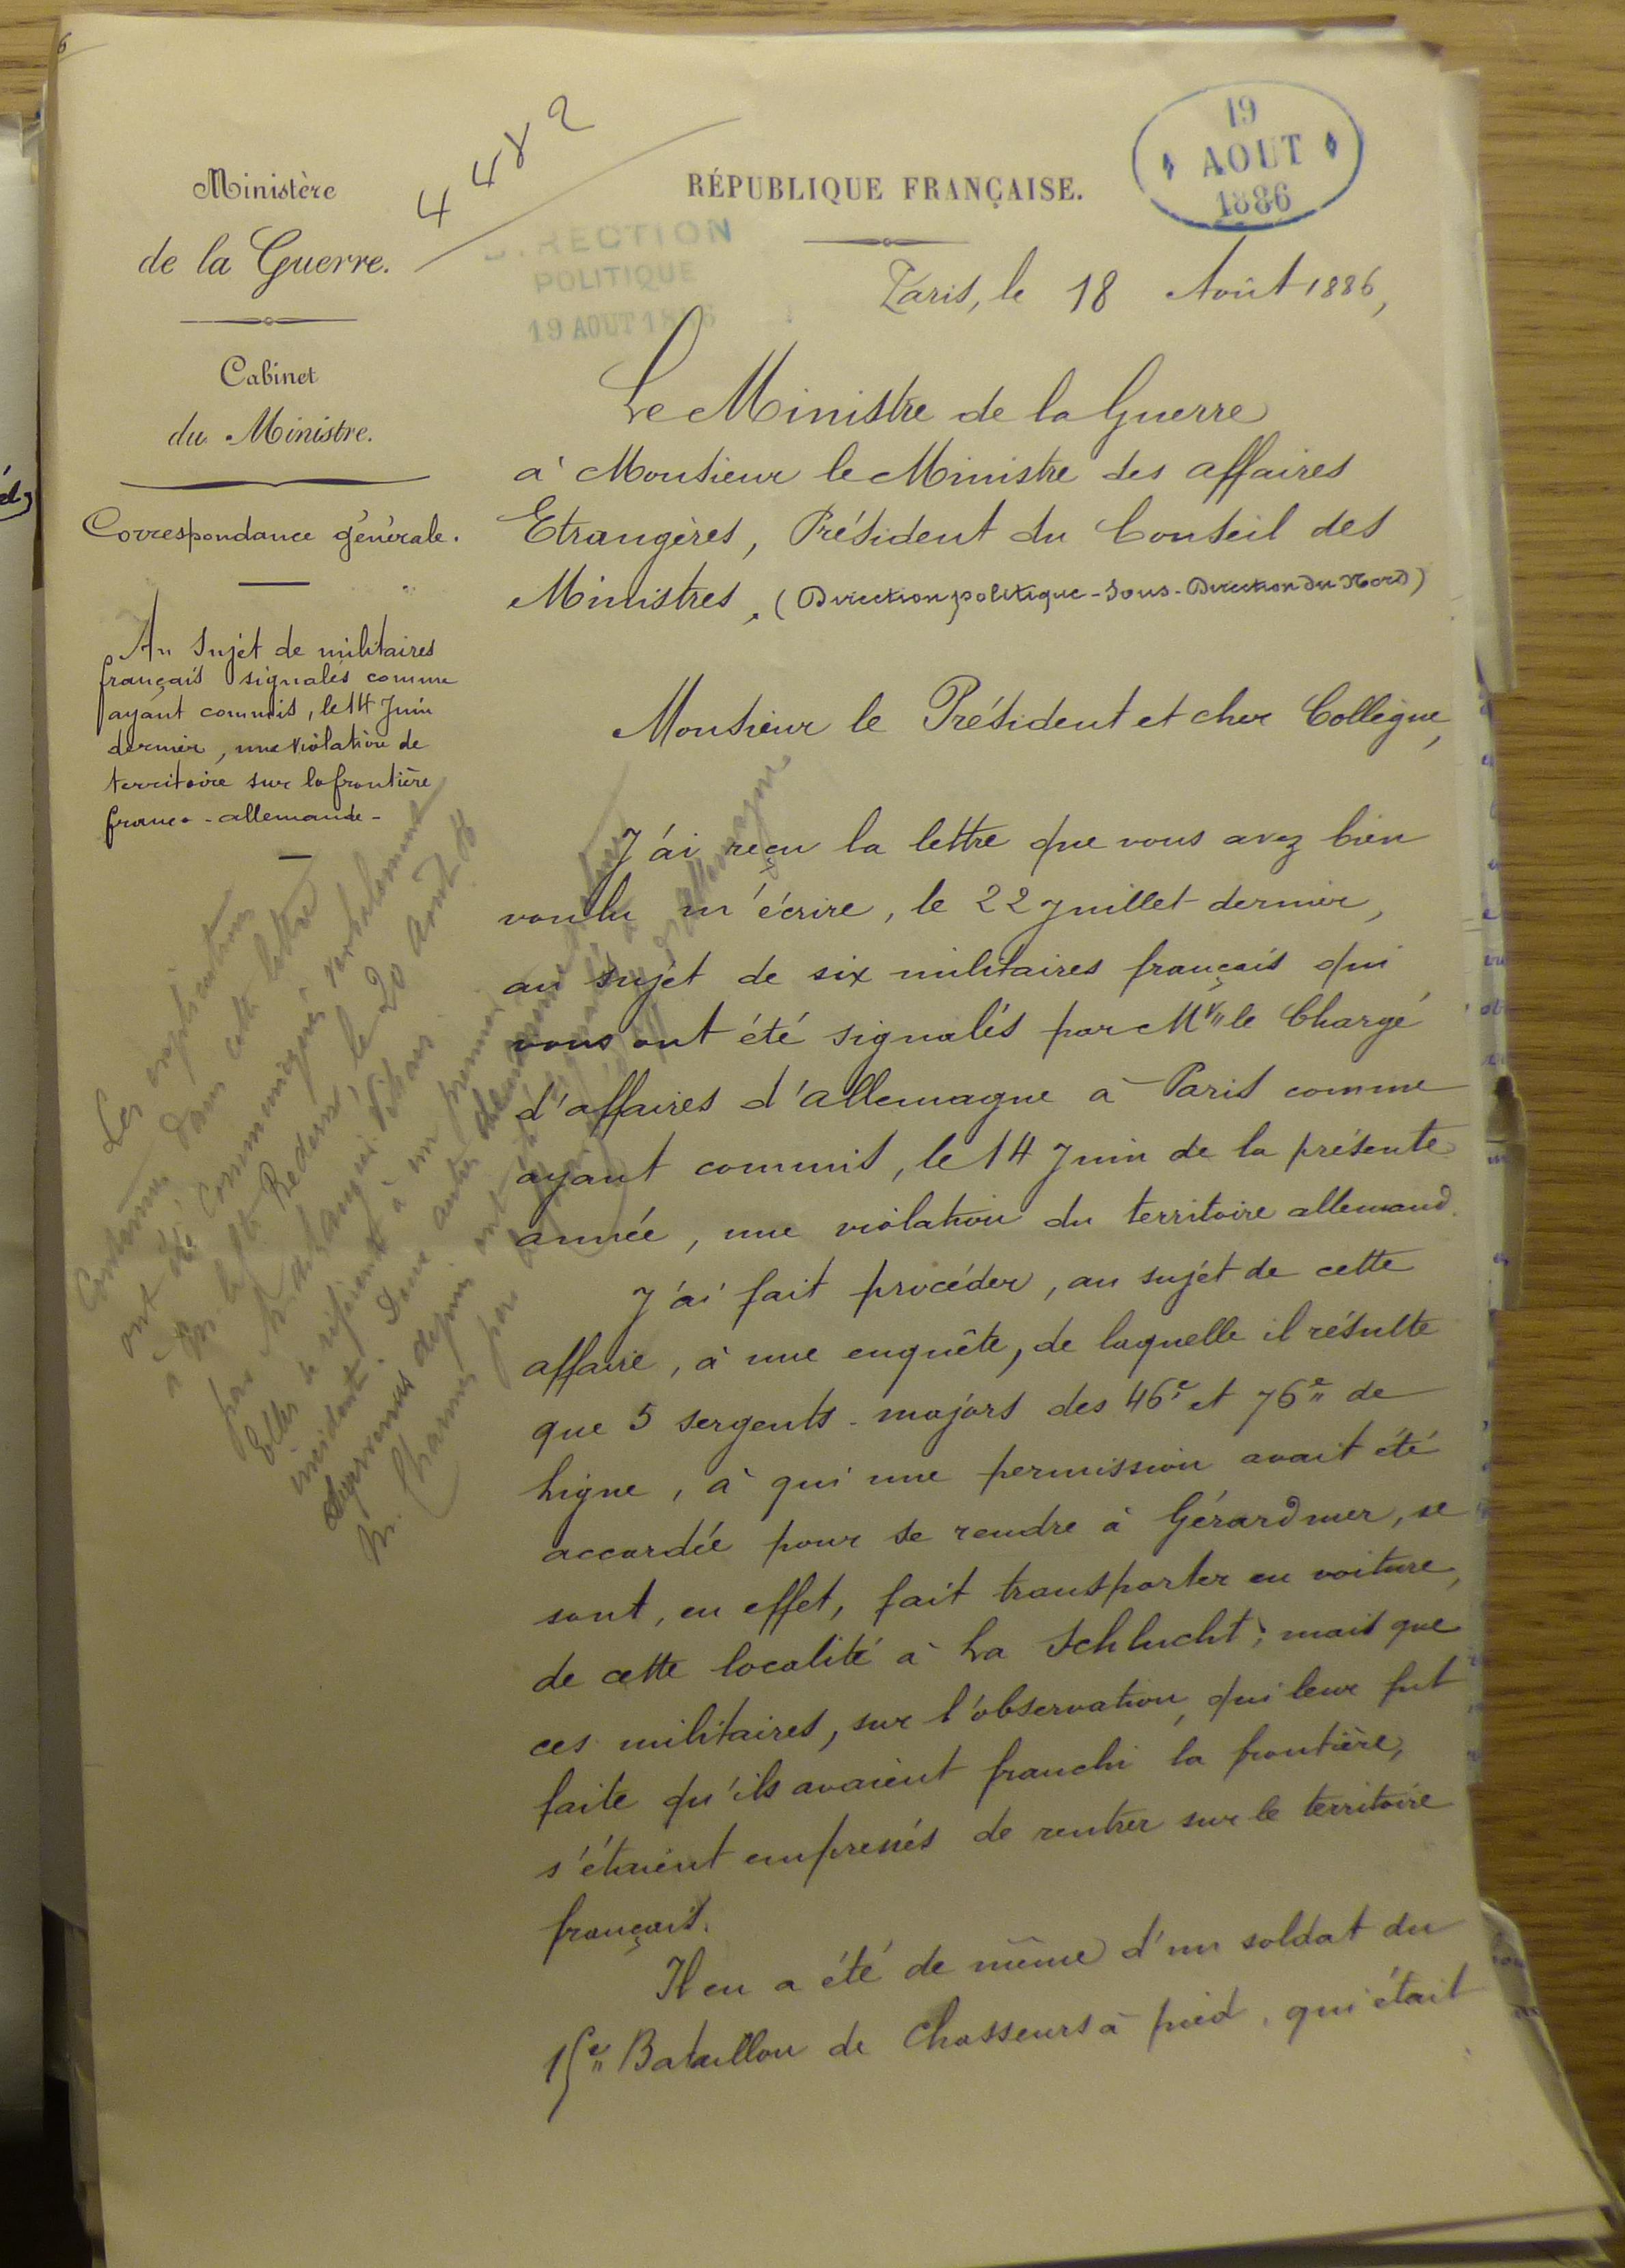 4482
Ministère
de la Guerre.
Cabinet
du Ministre.
Correspondance générale.
Au sujet de militaires
français signalés comme
ayant commis, le 14 Juin
dernier, une violation de
territoire sur la frontière
franco-allemande-
RÉPUBLIQUE FRANÇAISE.
19
AOUT
1886
DIRECTION
POLITIQUE
19 AOUT 1886
Paris, le 18 Août 1886,
Le Ministre de la Guerre
à Monsieur le Ministre des affaires
Etrangères, Président du Conseil des
Ministres, (Direction politique - Sous-Direction du Nord)
Monsieur le Président et cher Collègue,
J'ai reçu la lettre que vous avez bien
voulu m'écrire, le 22 Juillet dernier,
au sujet de six militaires français qui
vous ont été signalés par Mr le Chargé
d'affaires d'allemagne à Paris comme
ayant commis, le 14 Juin de la présente
année, une violation du territoire allemand.
J'ai fait procéder, au sujet de cette
affaire, à une enquête, de laquelle il résulte
que 5 sergents-majors des 46e et 76e de
Ligne, à qui une permission avait été
accordée pour se rendre à Gérardmer, se
sont, en effet, fait transporter en voiture,
de cette localité à La Schlucht; mais que
ces militaires, sur l'observation qui leur fut
faite qu'ils avaient franchi la frontière,
s'étaient empressés de rentrer sur le territoire
français.
Il en a été de même d'un soldat du
15e Bataillon de Chasseurs à pied, qui était
Les explications
contenues dans cette lettre
ont été communiquées verbalement
à M. le Cte Redern le 20 Août
par
Elles se réfèrent à un premier
incident. Deux autres
survenus depuis ont été signalés à
M. Charmes par d'Allemagne